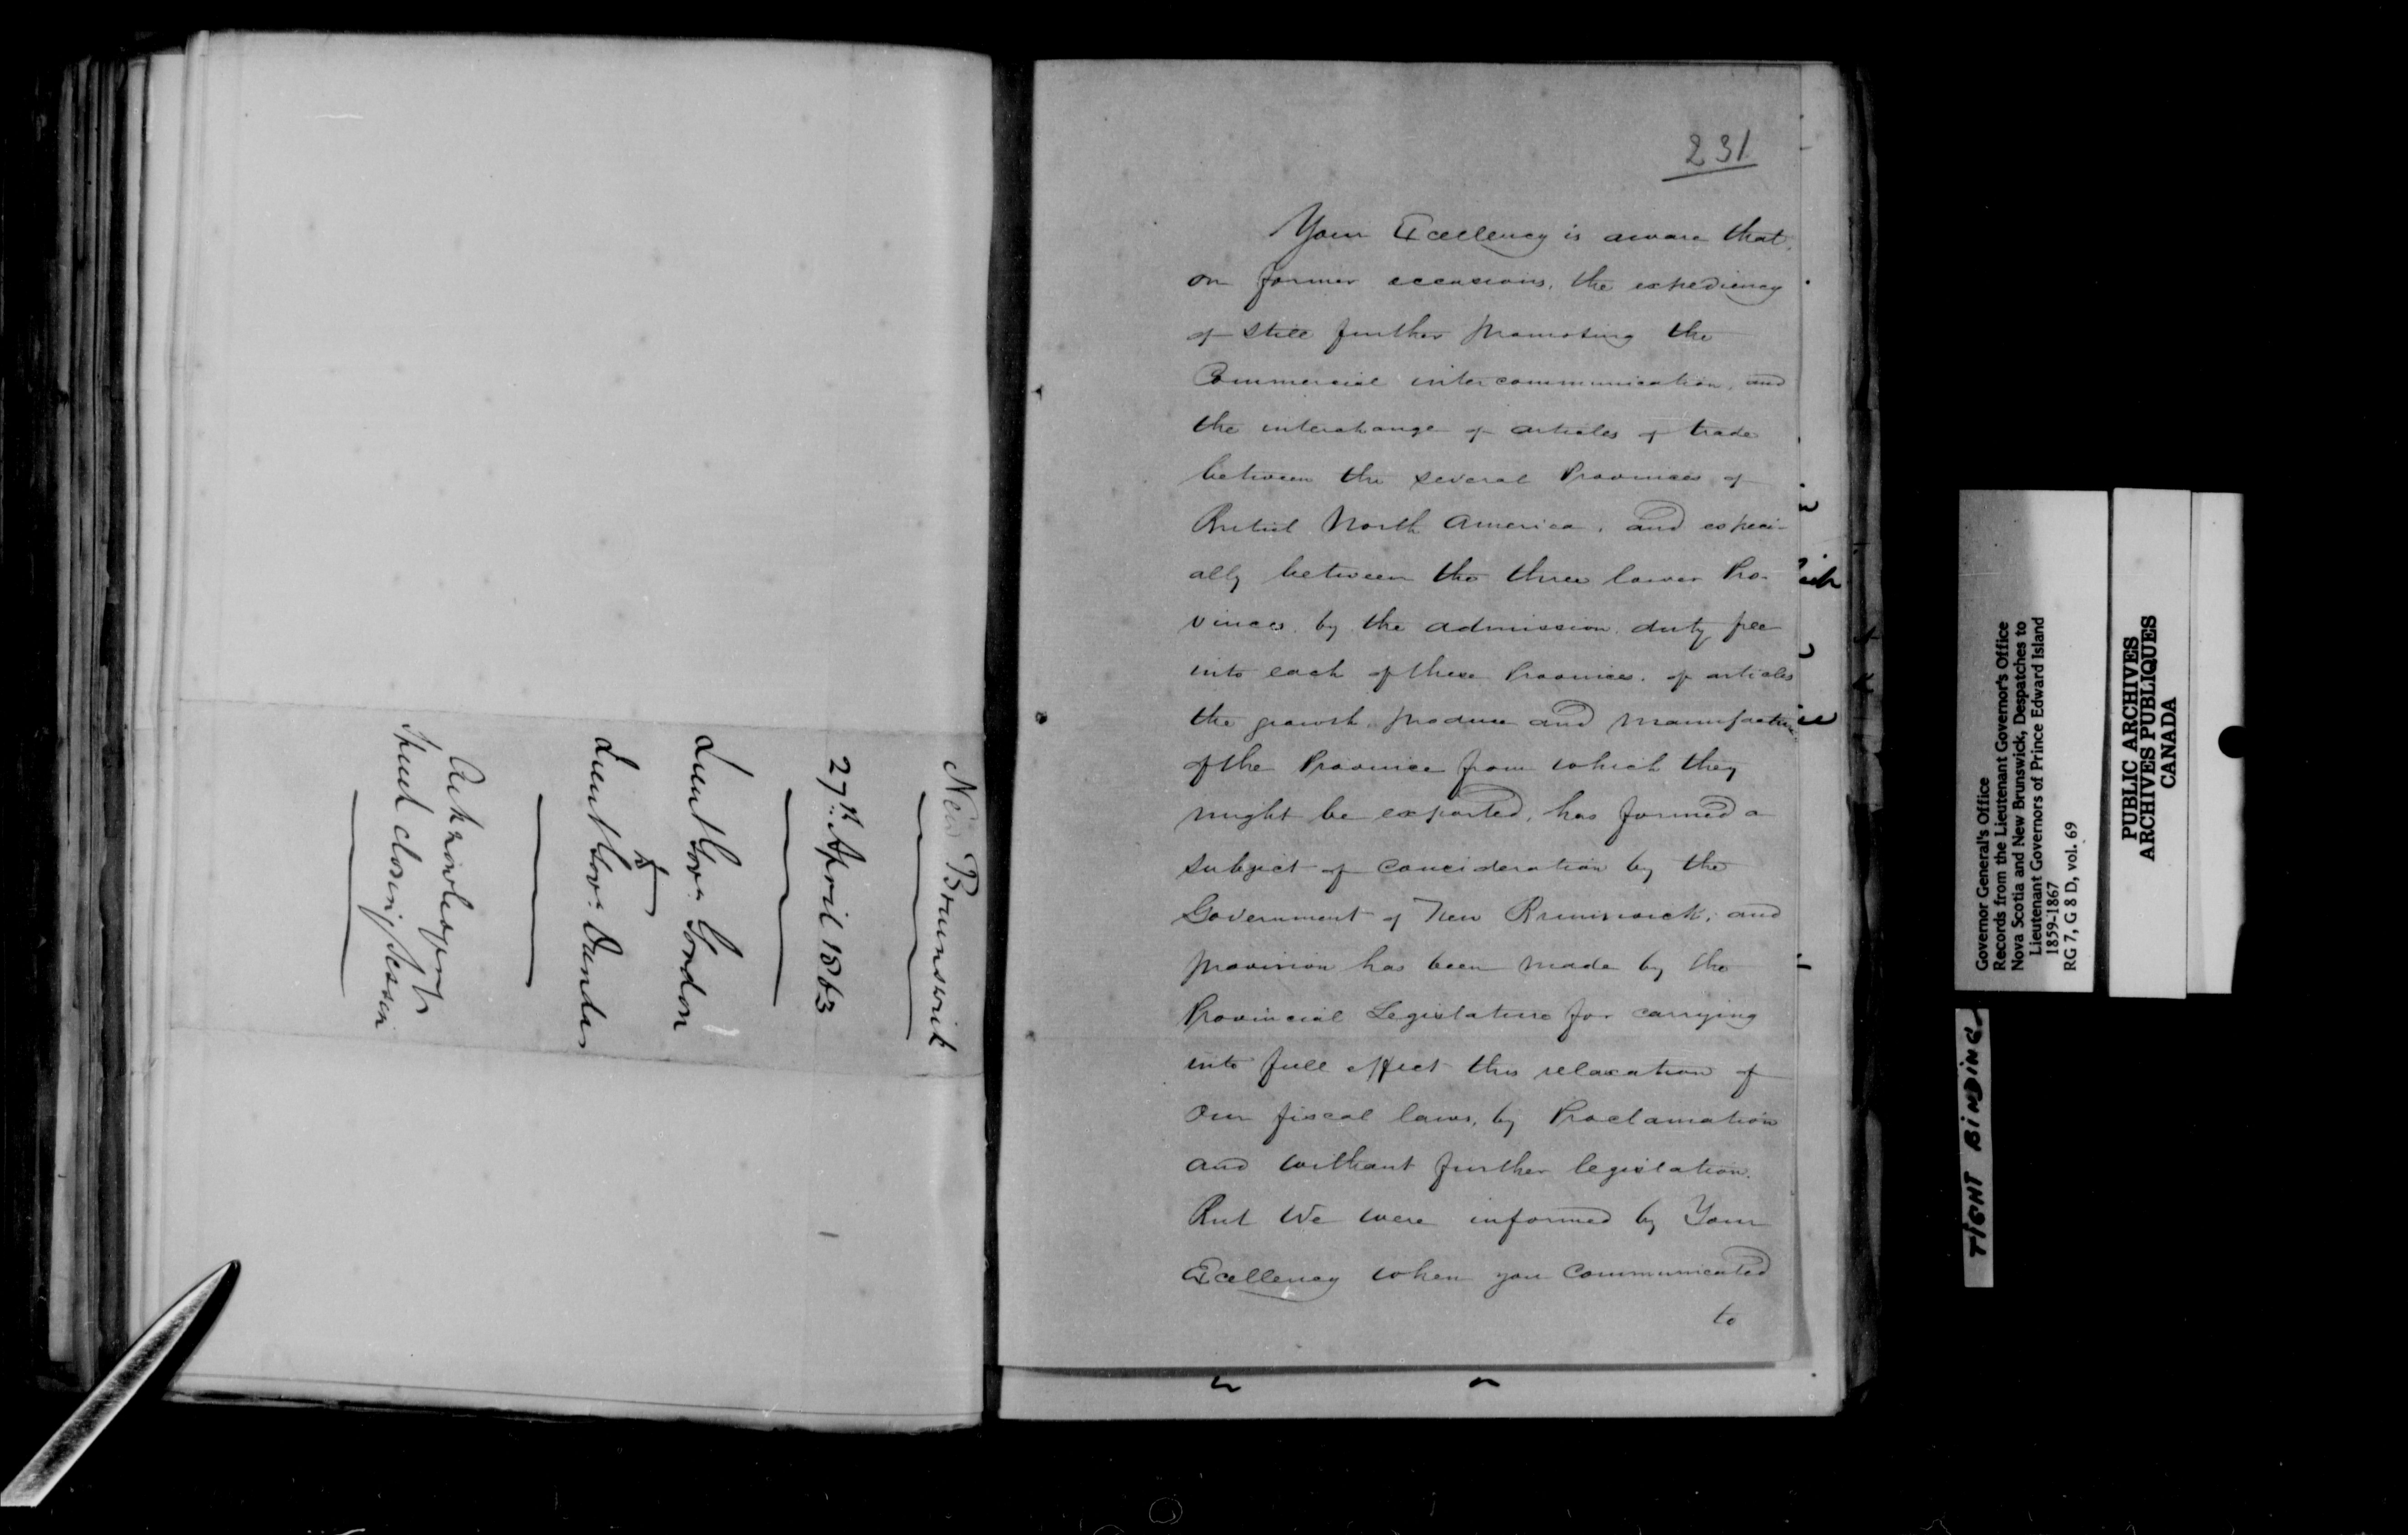 New Brunswick
27th April 1863
Lieut Govr. Gordon
to
Lieut Govr. Dundas
Acknowledgmt
Speech closing Session
231
Your Excellency is aware that,
on former occasions, the expediency
of still further promoting the
Commercial intercommunication, and
the interchange of articles of trade
between the several Provinces of
British North America, and especi-
ally between the three lower Pro-
vinces, by the admission, duty free
into each of these Provinces, of articles
the growth, produce and manufacture
of the Province from which they
might be exported, has formed a
subject of consideration by the
Government of New Brunswick; and
provision has been made by the
Provincial Legislature for carrying
into full effect this relaxation of
our fiscal laws, by Proclamation
and without further legislation.
But We were informed by Your
Excellency when you communicated
to
Governor General's Office
Records from the Lieutenant Governor's Office
Nova Scotia and New Brunswick, Despatches to
Lieutenant Governors of Prince Edward Island
1859-1867
RG 7, G 8 D, vol. 69
PUBLIC ARCHIVES
ARCHIVES PUBLIQUES
CANADA
TIGHT BINDING